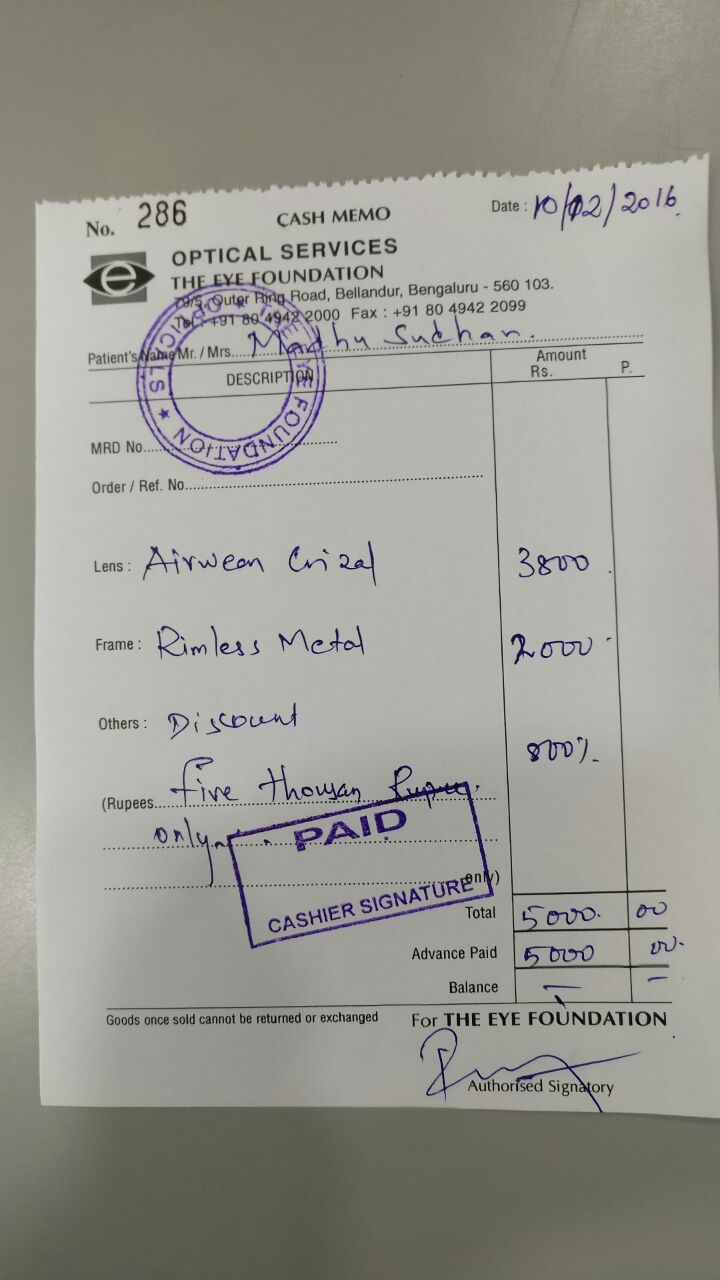 No. 286 CASH MEMO Date : 10/02/2016
OPTICAL SERVICES
THE EYE FOUNDATION
79/5, Outer Ring Road, Bellandur, Bengaluru - 560 103.
Tel : +91 80 4942 2000 Fax : +91 80 4942 2099
Patient's Name Mr. / Mrs. Madhu Sudhan.
DESCRIPTION Amount
Rs. P.
THE EYE FOUNDATION ★ OPTICALS ★
MRD No.
Order / Ref. No.
Lens : Airwear Crizal 3800
Frame : Rimless Metal 2000
Others : Discount
800/-
(Rupees Five thousan Rupee
only
only)
PAID
CASHIER SIGNATURE
Total 5000. 00
Advance Paid 5000 00.
Balance – –
Goods once sold cannot be returned or exchanged For THE EYE FOUNDATION
Authorised Signatory